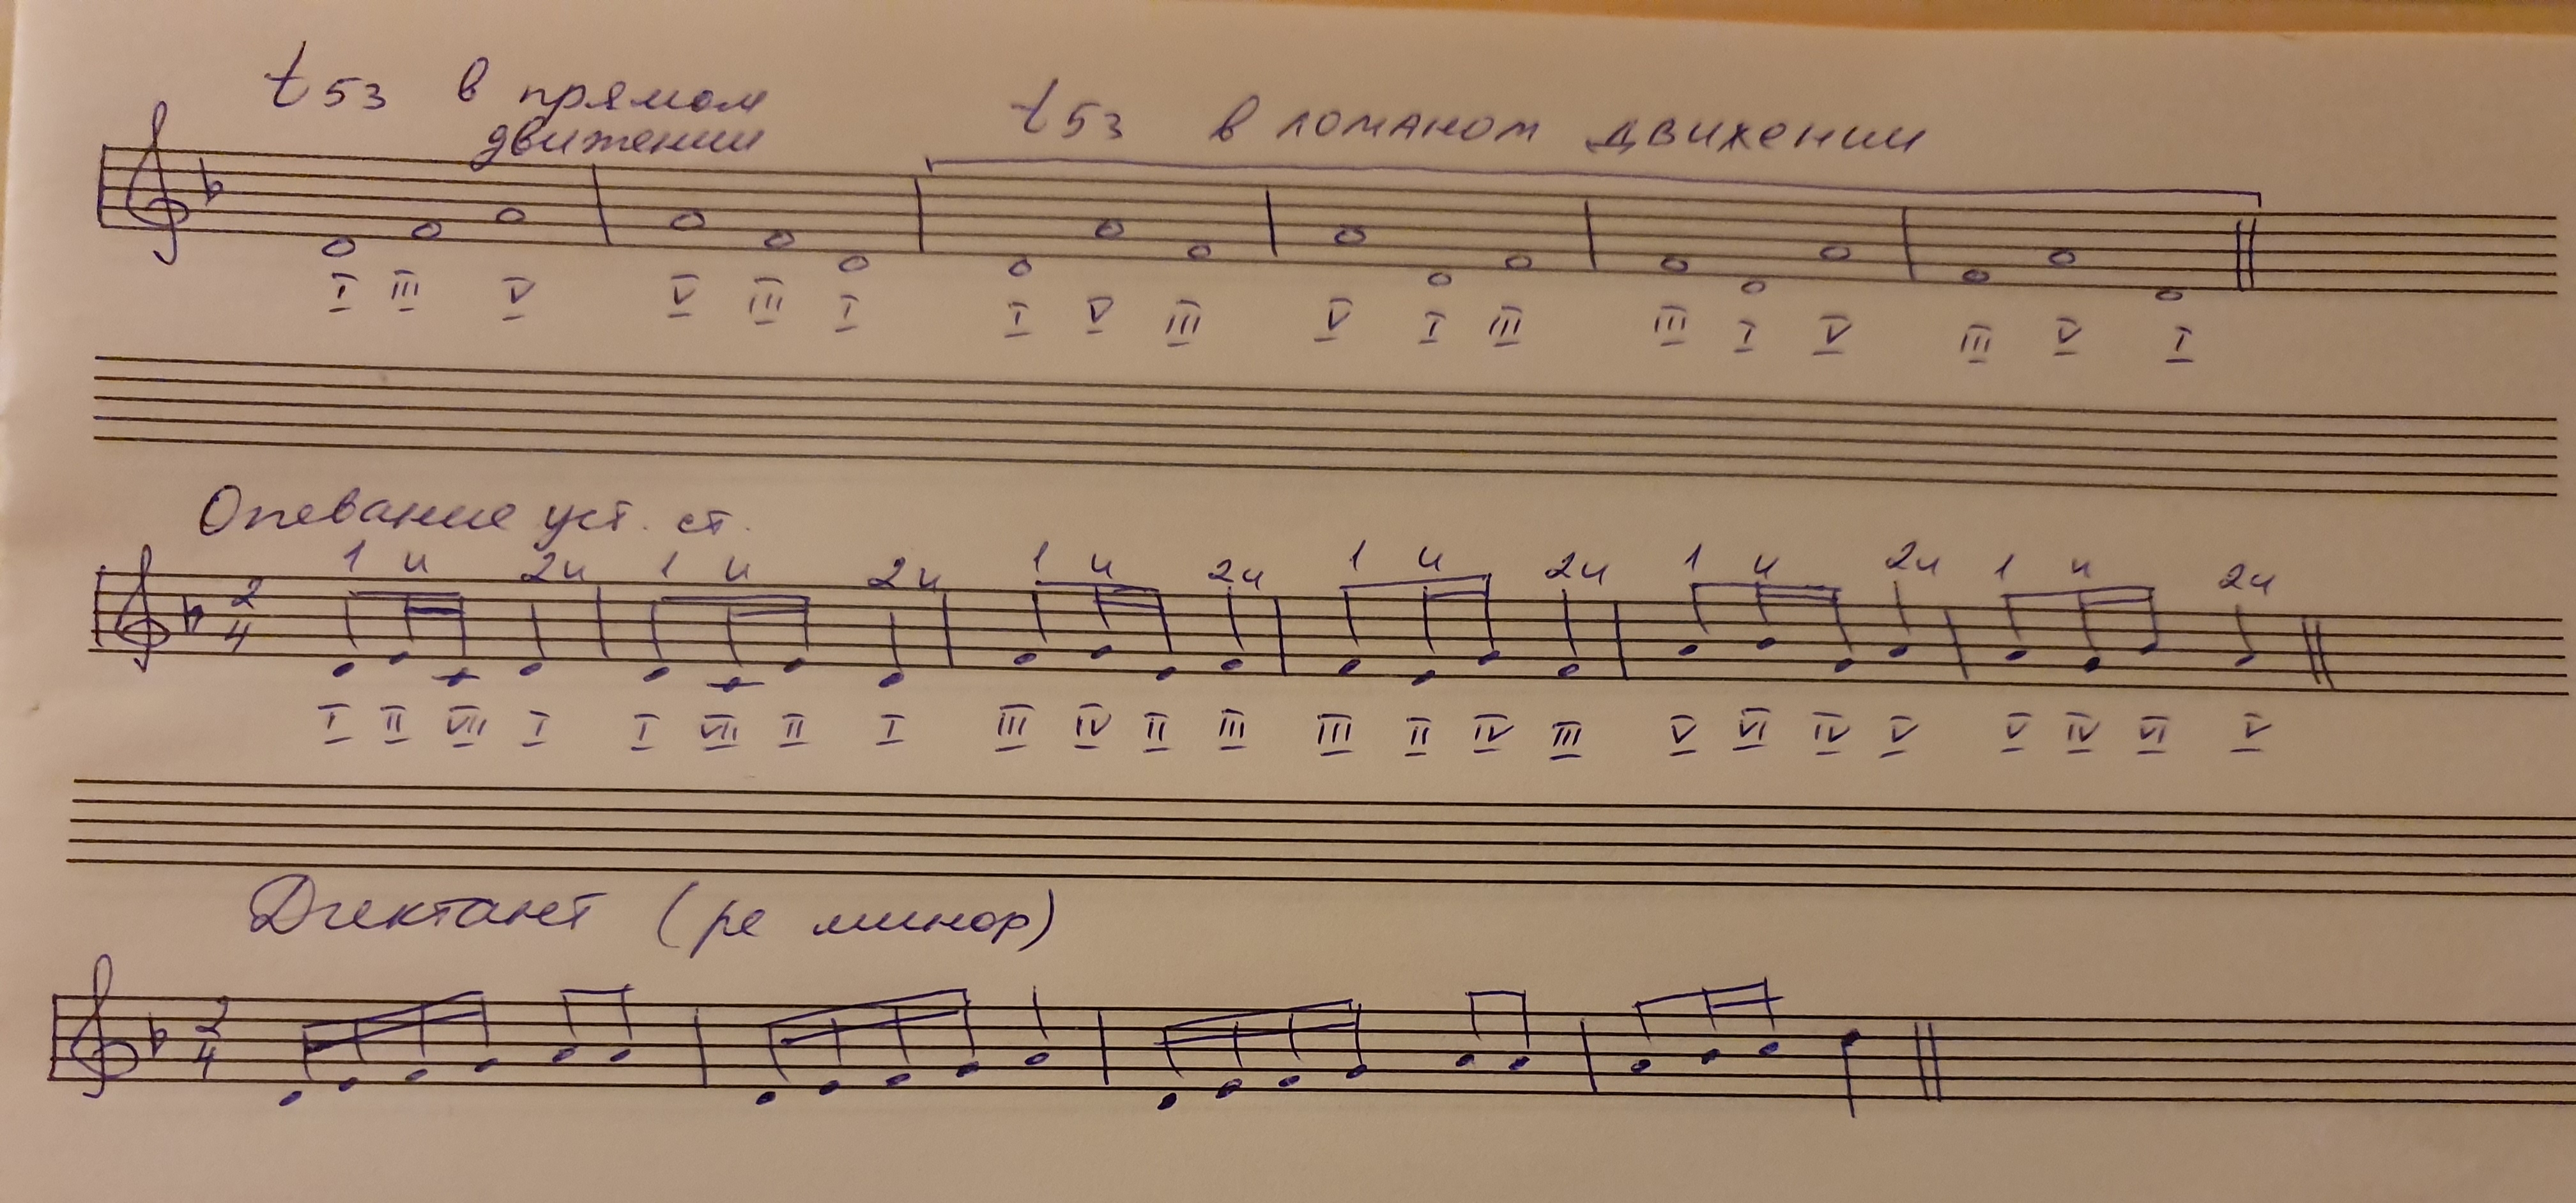 t53 в прямом
движении
t53 в ломаном движении
I III V V III I I V III V I III III I V III V I
Опевание уст. ст.
1 и 2и 1 и 2и 1 и 2и 1 и 2и 1 и 2и 1 и 2и
2
4
I II VII I I VII II I III IV II III III II IV III V VI IV V V IV VI V
Диктант (ре минор)
2
4